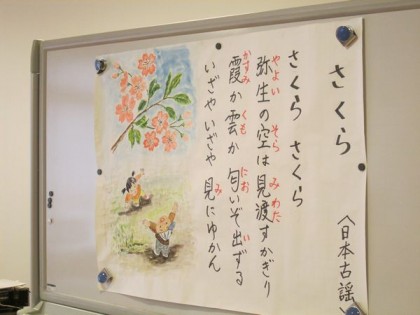 さくら
〈日本古謡
さくら さくら
やよい そら みわた
弥生の空は見渡すかぎり
かすみ くも にお い
霞か雲か 匂いぞ出ずる
いざやいざや 見にゆかん
み